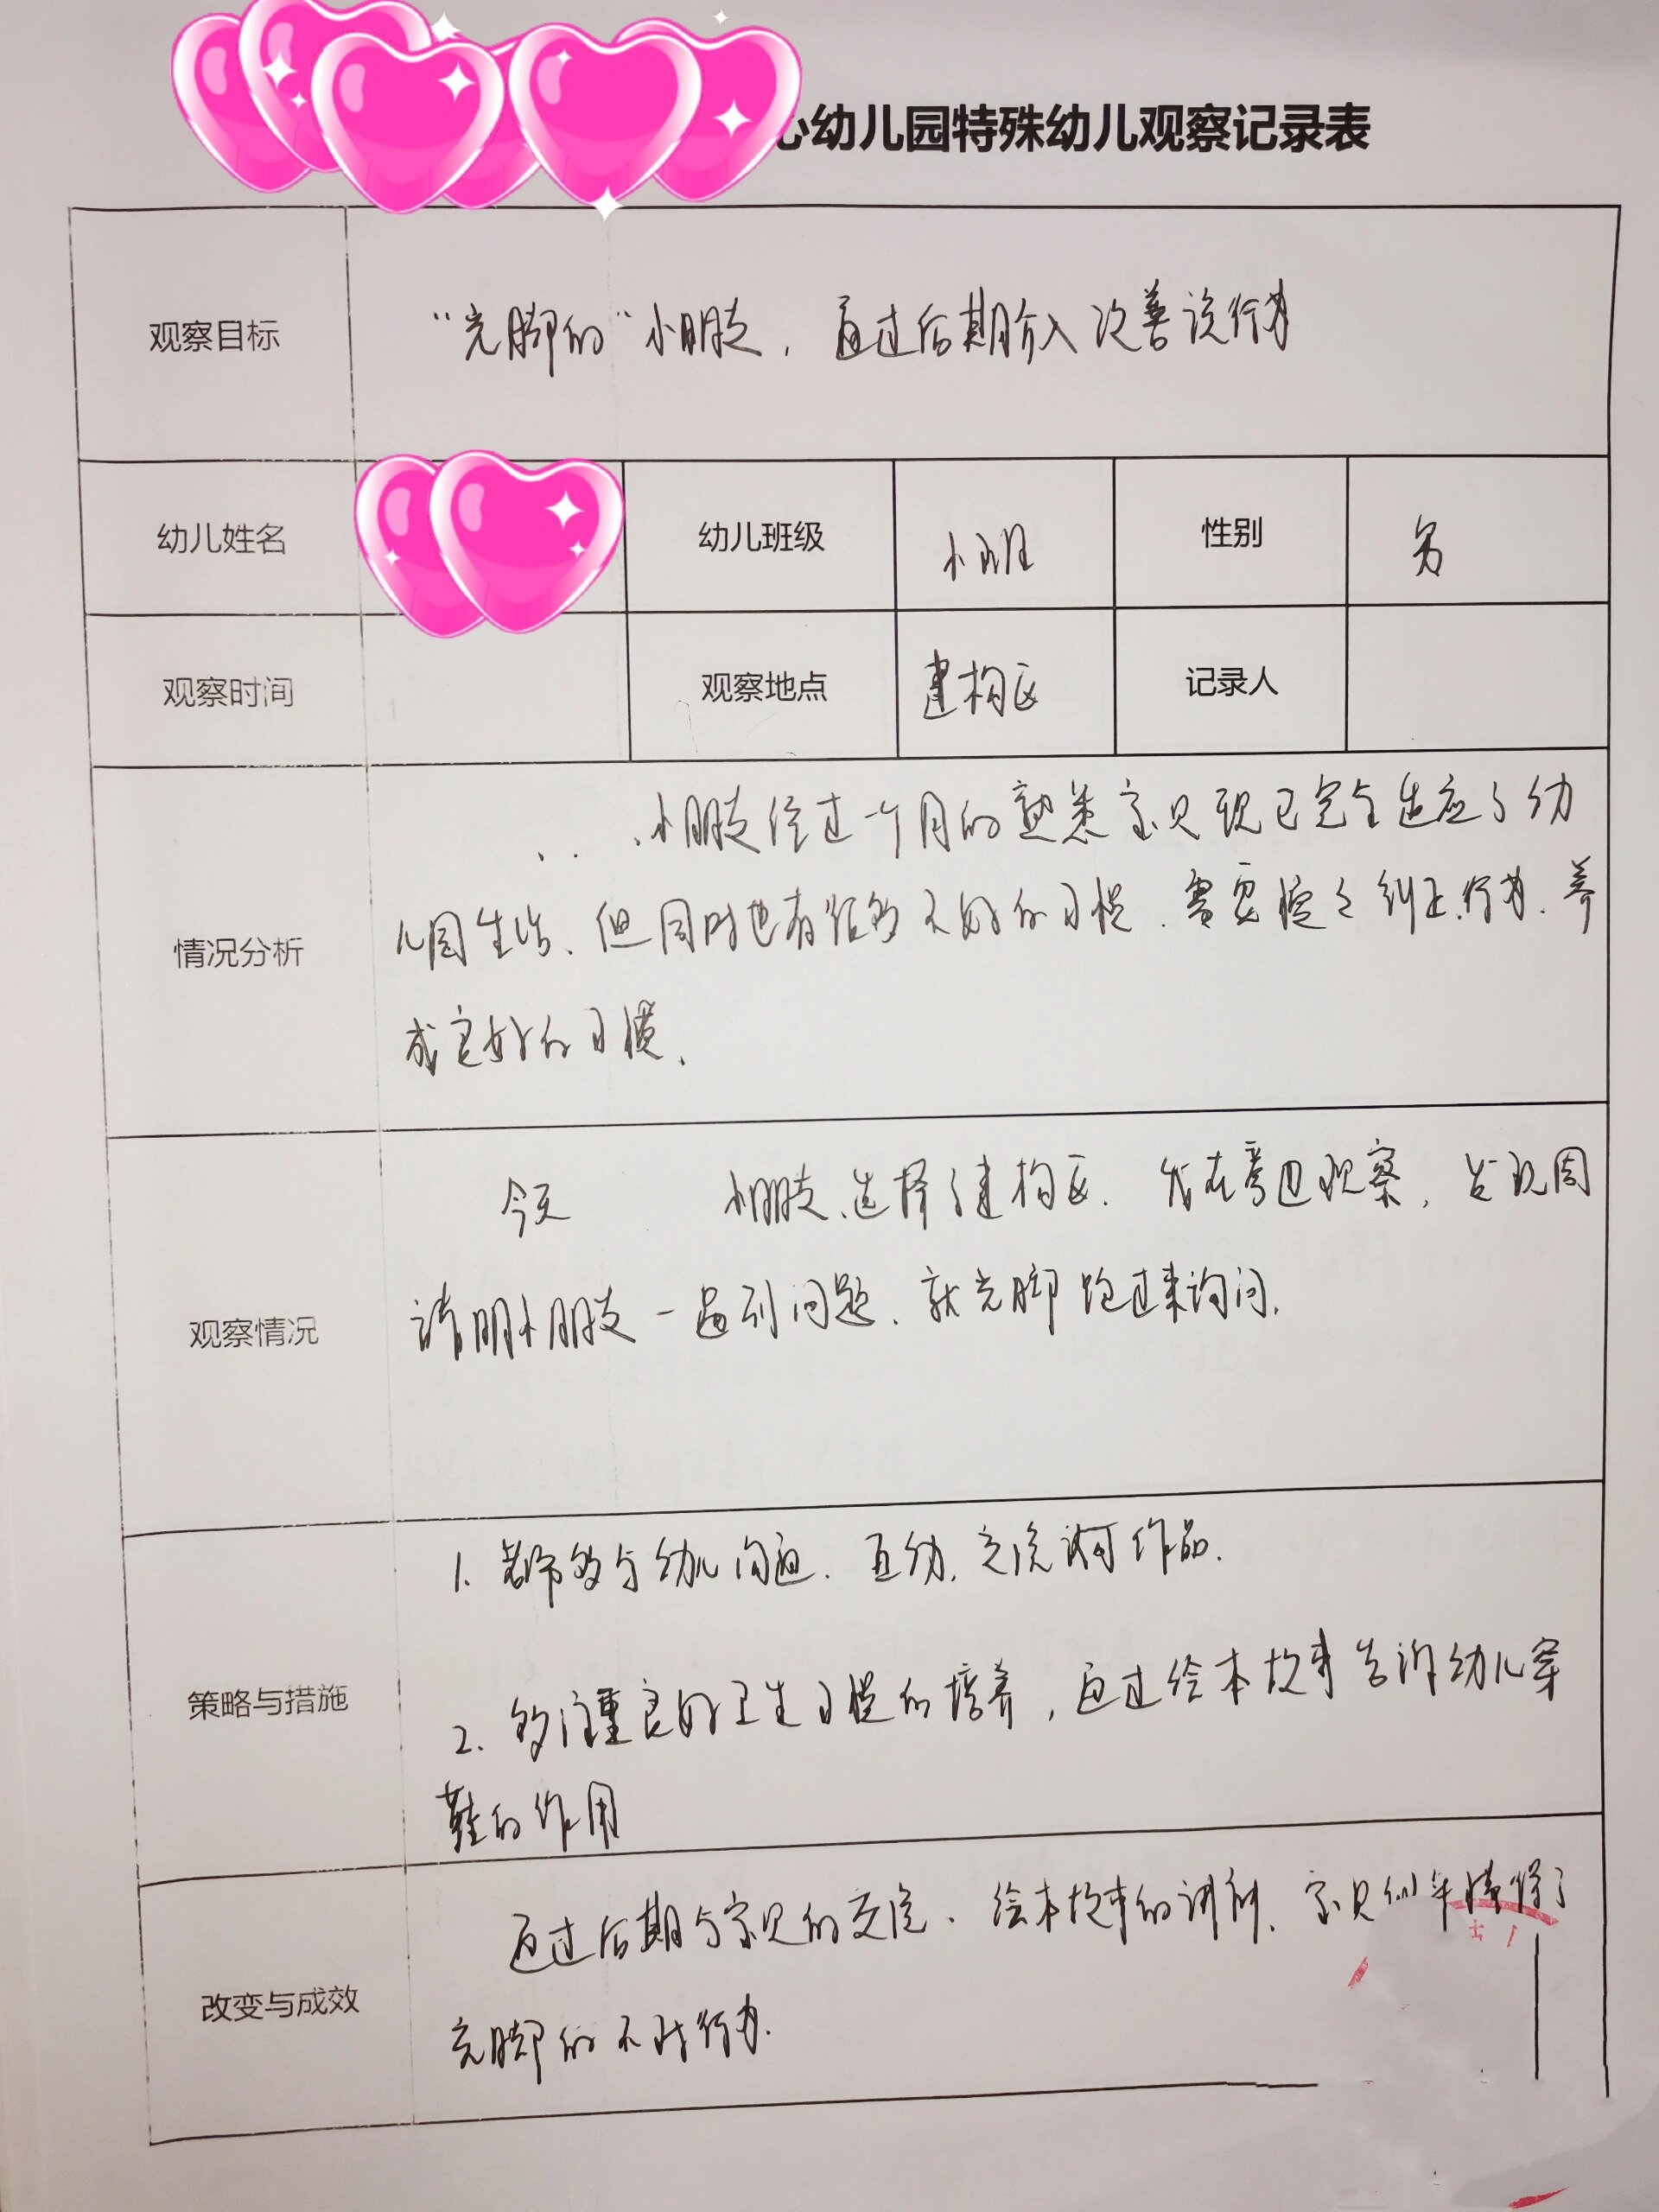 心幼儿园特殊幼儿观察记录表
观察目标
“光脚的”小朋友，通过后期介入改善该行为
幼儿姓名 幼儿班级 小班 性别 男
观察时间 观察地点 建构区 记录人
情况分析
小朋友经过一个月的熟悉宝贝现已完全适应了幼
儿园生活、但同时也有很多不好的习惯、需要慢慢纠正行为、养
成良好的习惯、
观察情况
今天 小朋友选择了建构区、我在旁边观察，发现周
小朋友一遇到问题、就光脚跑过来询问、
策略与措施
1、老师多与幼儿沟通、互动、交流 作品、
2、多注重良好卫生习惯的培养，通过绘本故事告诉幼儿穿
鞋的作用
改变与成效
通过后期与宝贝的交流、绘本故事的讲解、宝贝 懂得了
光脚的不对行为、